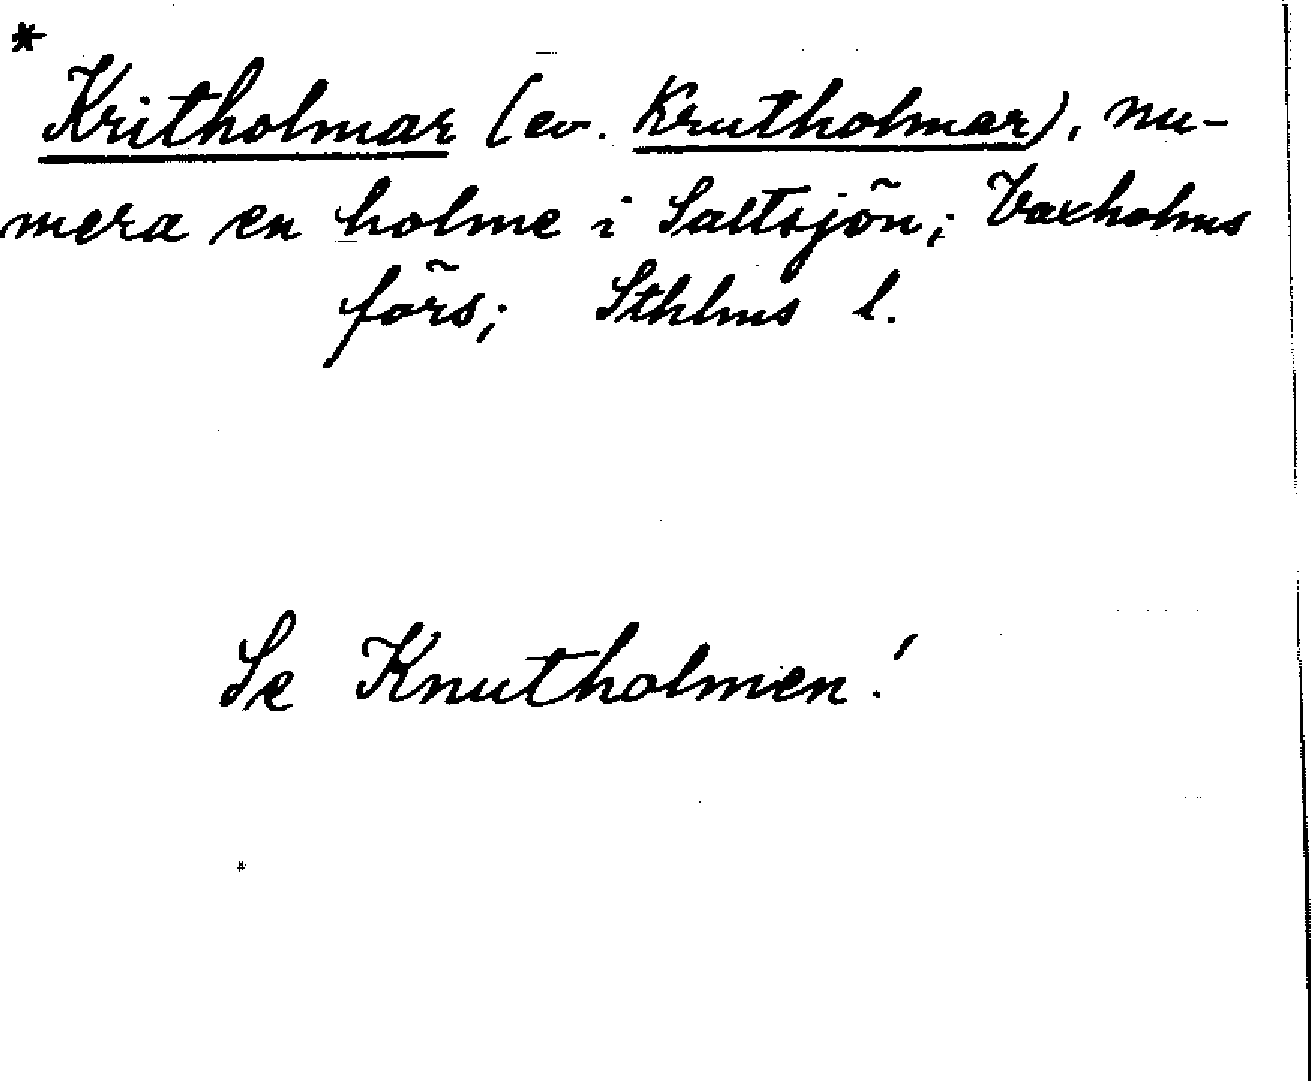 *
Kritholmar (ev. Krutholmar), nu-
mera en holme i Saltsjön; Vaxholms
förs; Sthlms l.
Se Knutholmen!